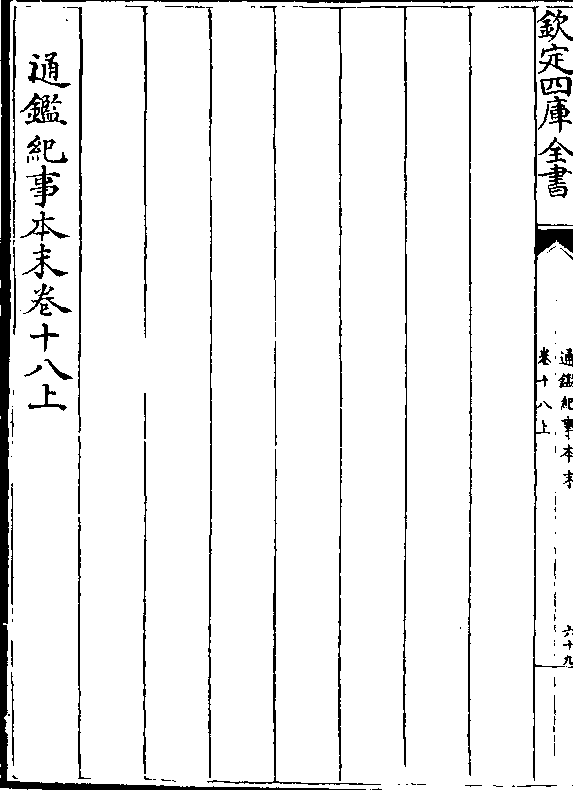 欽定四庫全書
通鑑紀事本末
卷十八上
六十九
通鑑紀事本末卷十八上